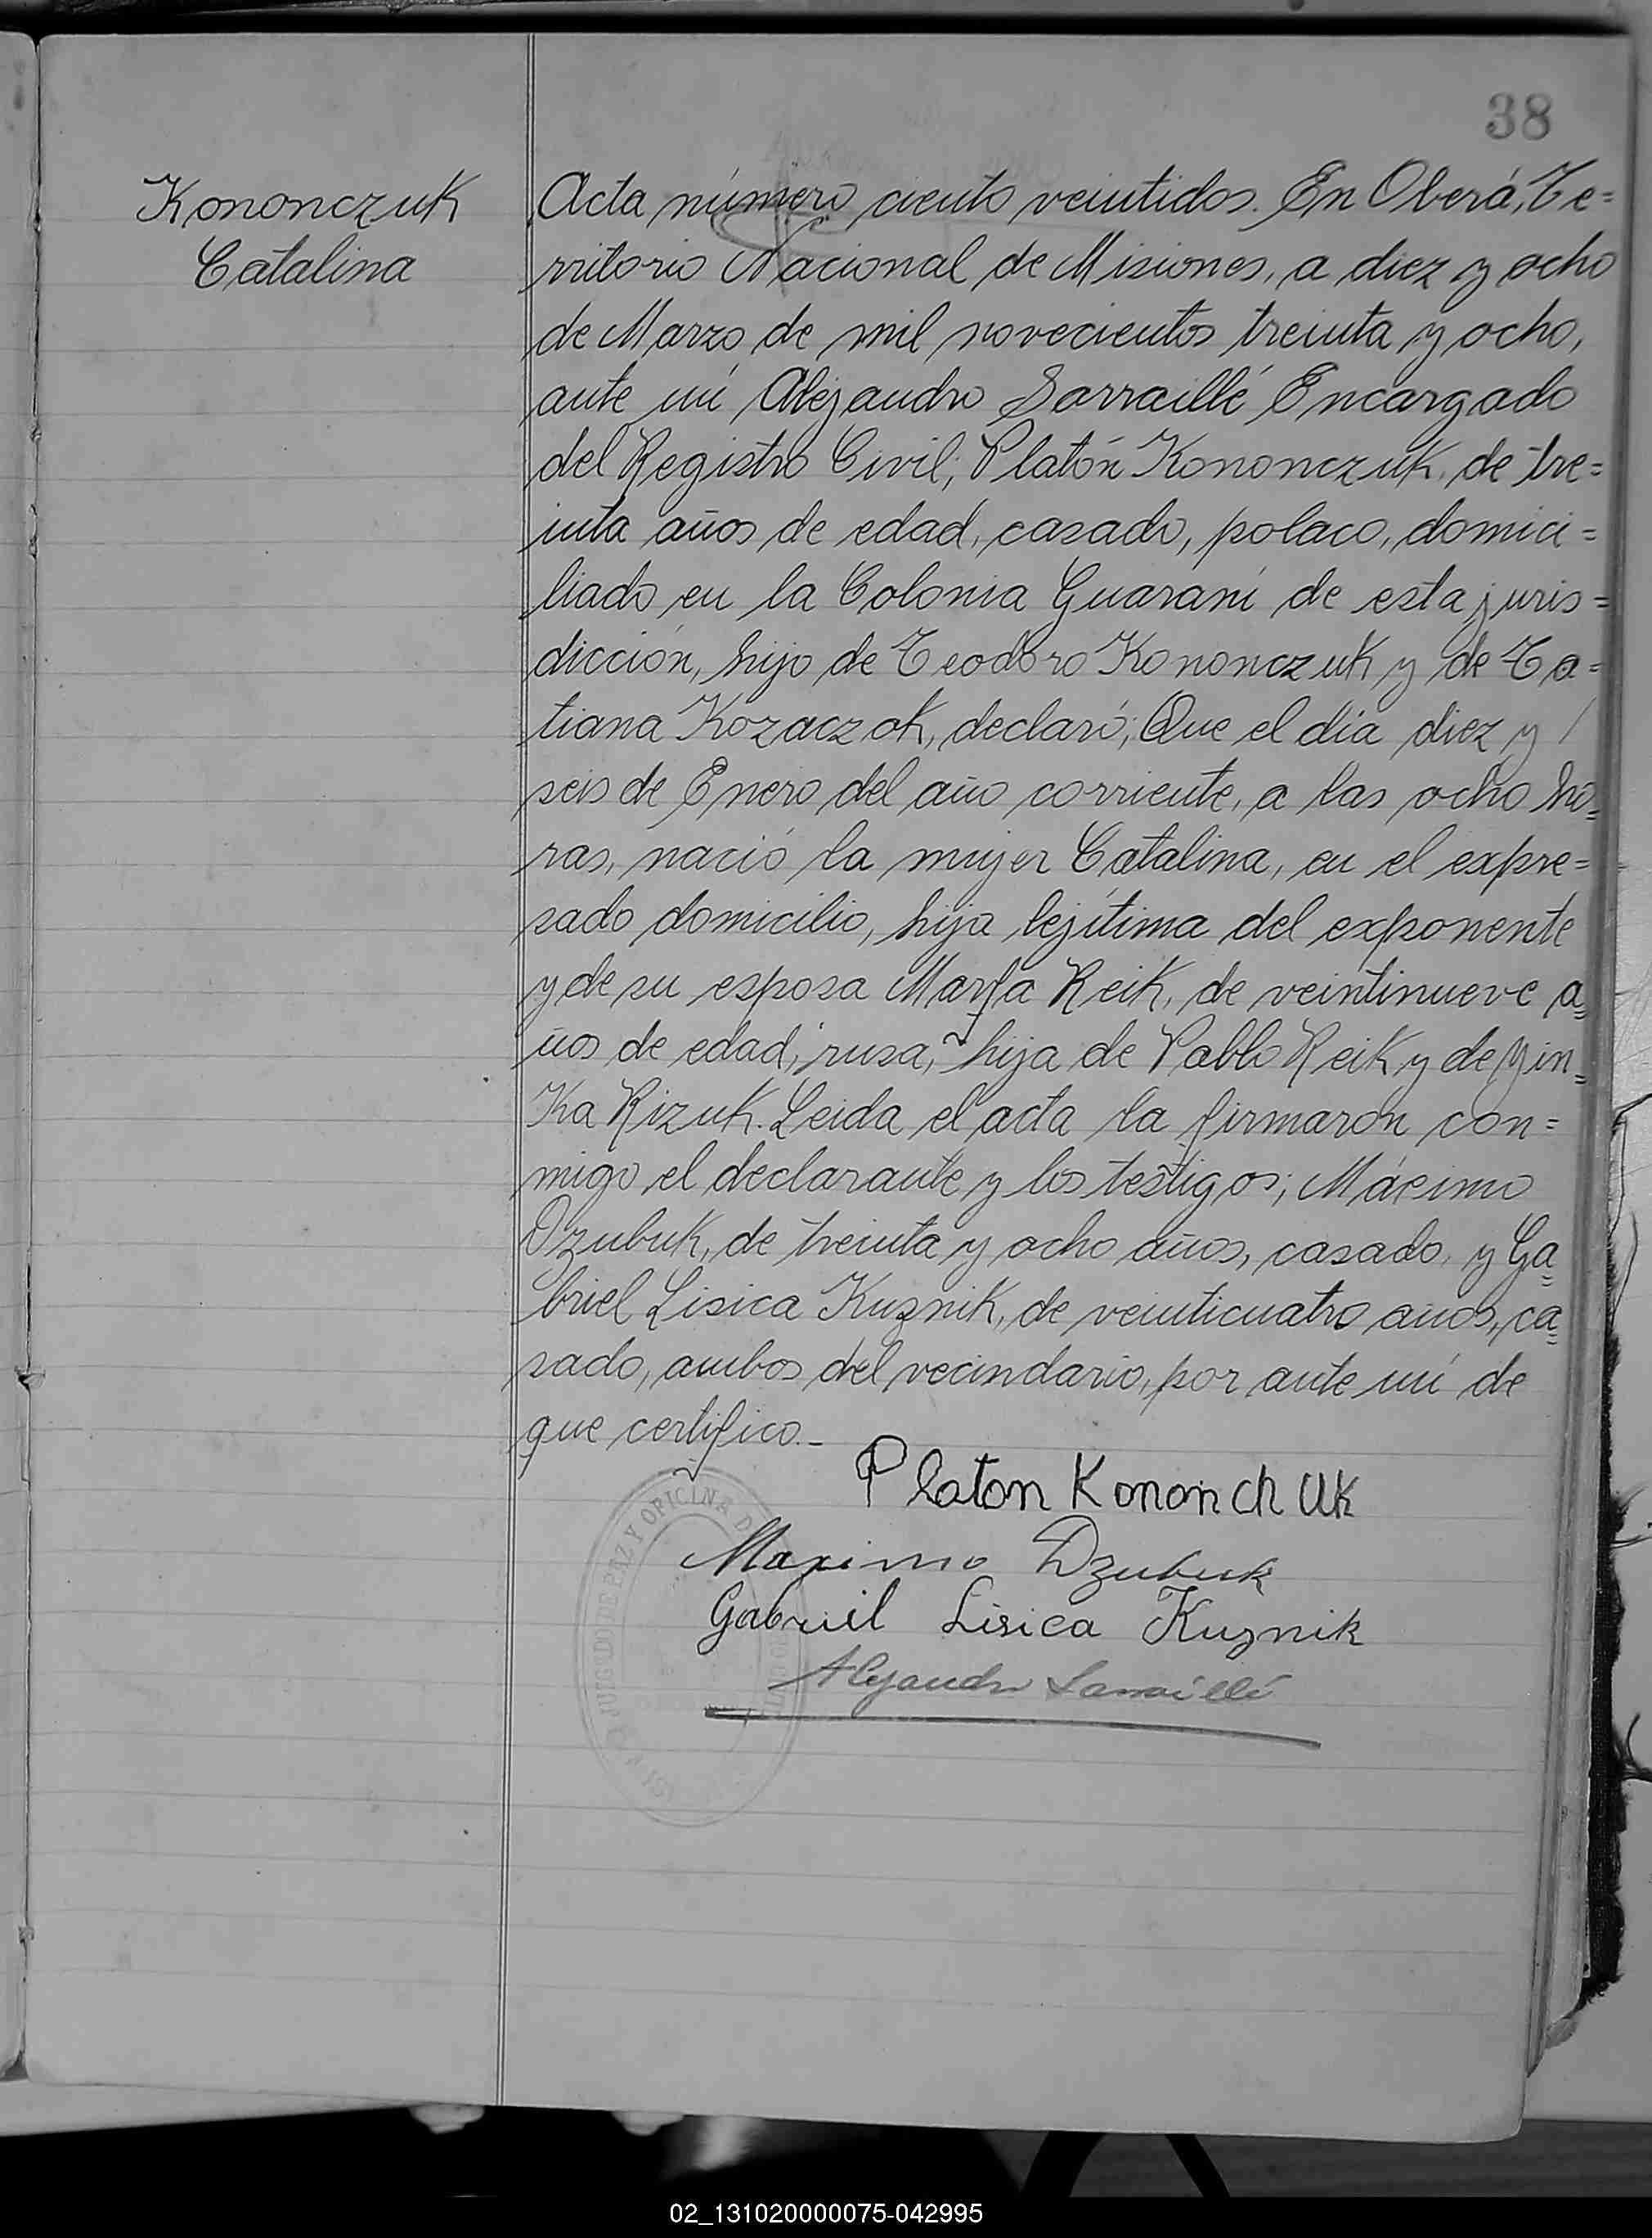 38
Kononczuk
Catalina
Acta número ciento veintidos. En Oberá, Te=
rritorio Nacional de Misiones, a diez y ocho
de Marzo de mil novecientos treinta y ocho,
ante mi Alejandro Sarraillé Encargado
del Registro Civil; Platón Kononczuk, de tre=
inta años de edad, casado, polaco, domici=
liado en la Colonia Guaraní de esta juris=
dicción, hijo de Teodoro Kononczuk y de Ta=
tiana Kozaczok, declaró; Que el día diez y /
seis de Enero del año corriente, a las ocho ho=
ras, nació la mujer Catalina, en el expre=
sado domicilio, hija lejítima del exponente
y de su esposa Marfa Reik, de veintinueve a=
ños de edad, rusa, hija de Pablo Reik y de Yin=
Ka Rizuk. Leida el acta la firmaron con=
migo el declarante y los testigos; Máximo
Dzubuk, de treinta y ocho años, casado, y Ga=
briel Lisica Kuznik, de veinticuatro años, ca=
sado, ambos del vecindario, por ante mí de
que certifico.-
Platon Kononch UK
Maximo Dzubuk
Gabriel Lisica Kuznik
Alejandro Sarraillé
JUZGADO DE PAZ Y OFICINA D
02_131020000075-042995